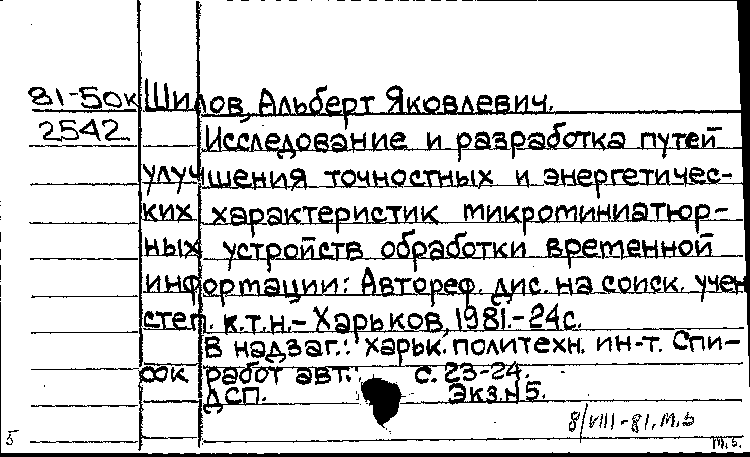 81-50к Шилов, Альберт Яковлевич.
2542 Исследование и разработка путей
улучшения точностных и энергетичес-
ких характеристик микроминиатюр-
ных устройств обработки временной
информации: Автореф. дис. на соиск. учен
степ. к.т.н.- Харьков, 1981.-24с.
В надзаг.: Харьк. политехн. ин-т. Спи-
сок работ авт.: с. 23-24.
ДСП. Экз.N5.
8/VIII-81. М.Б
5 м.б.